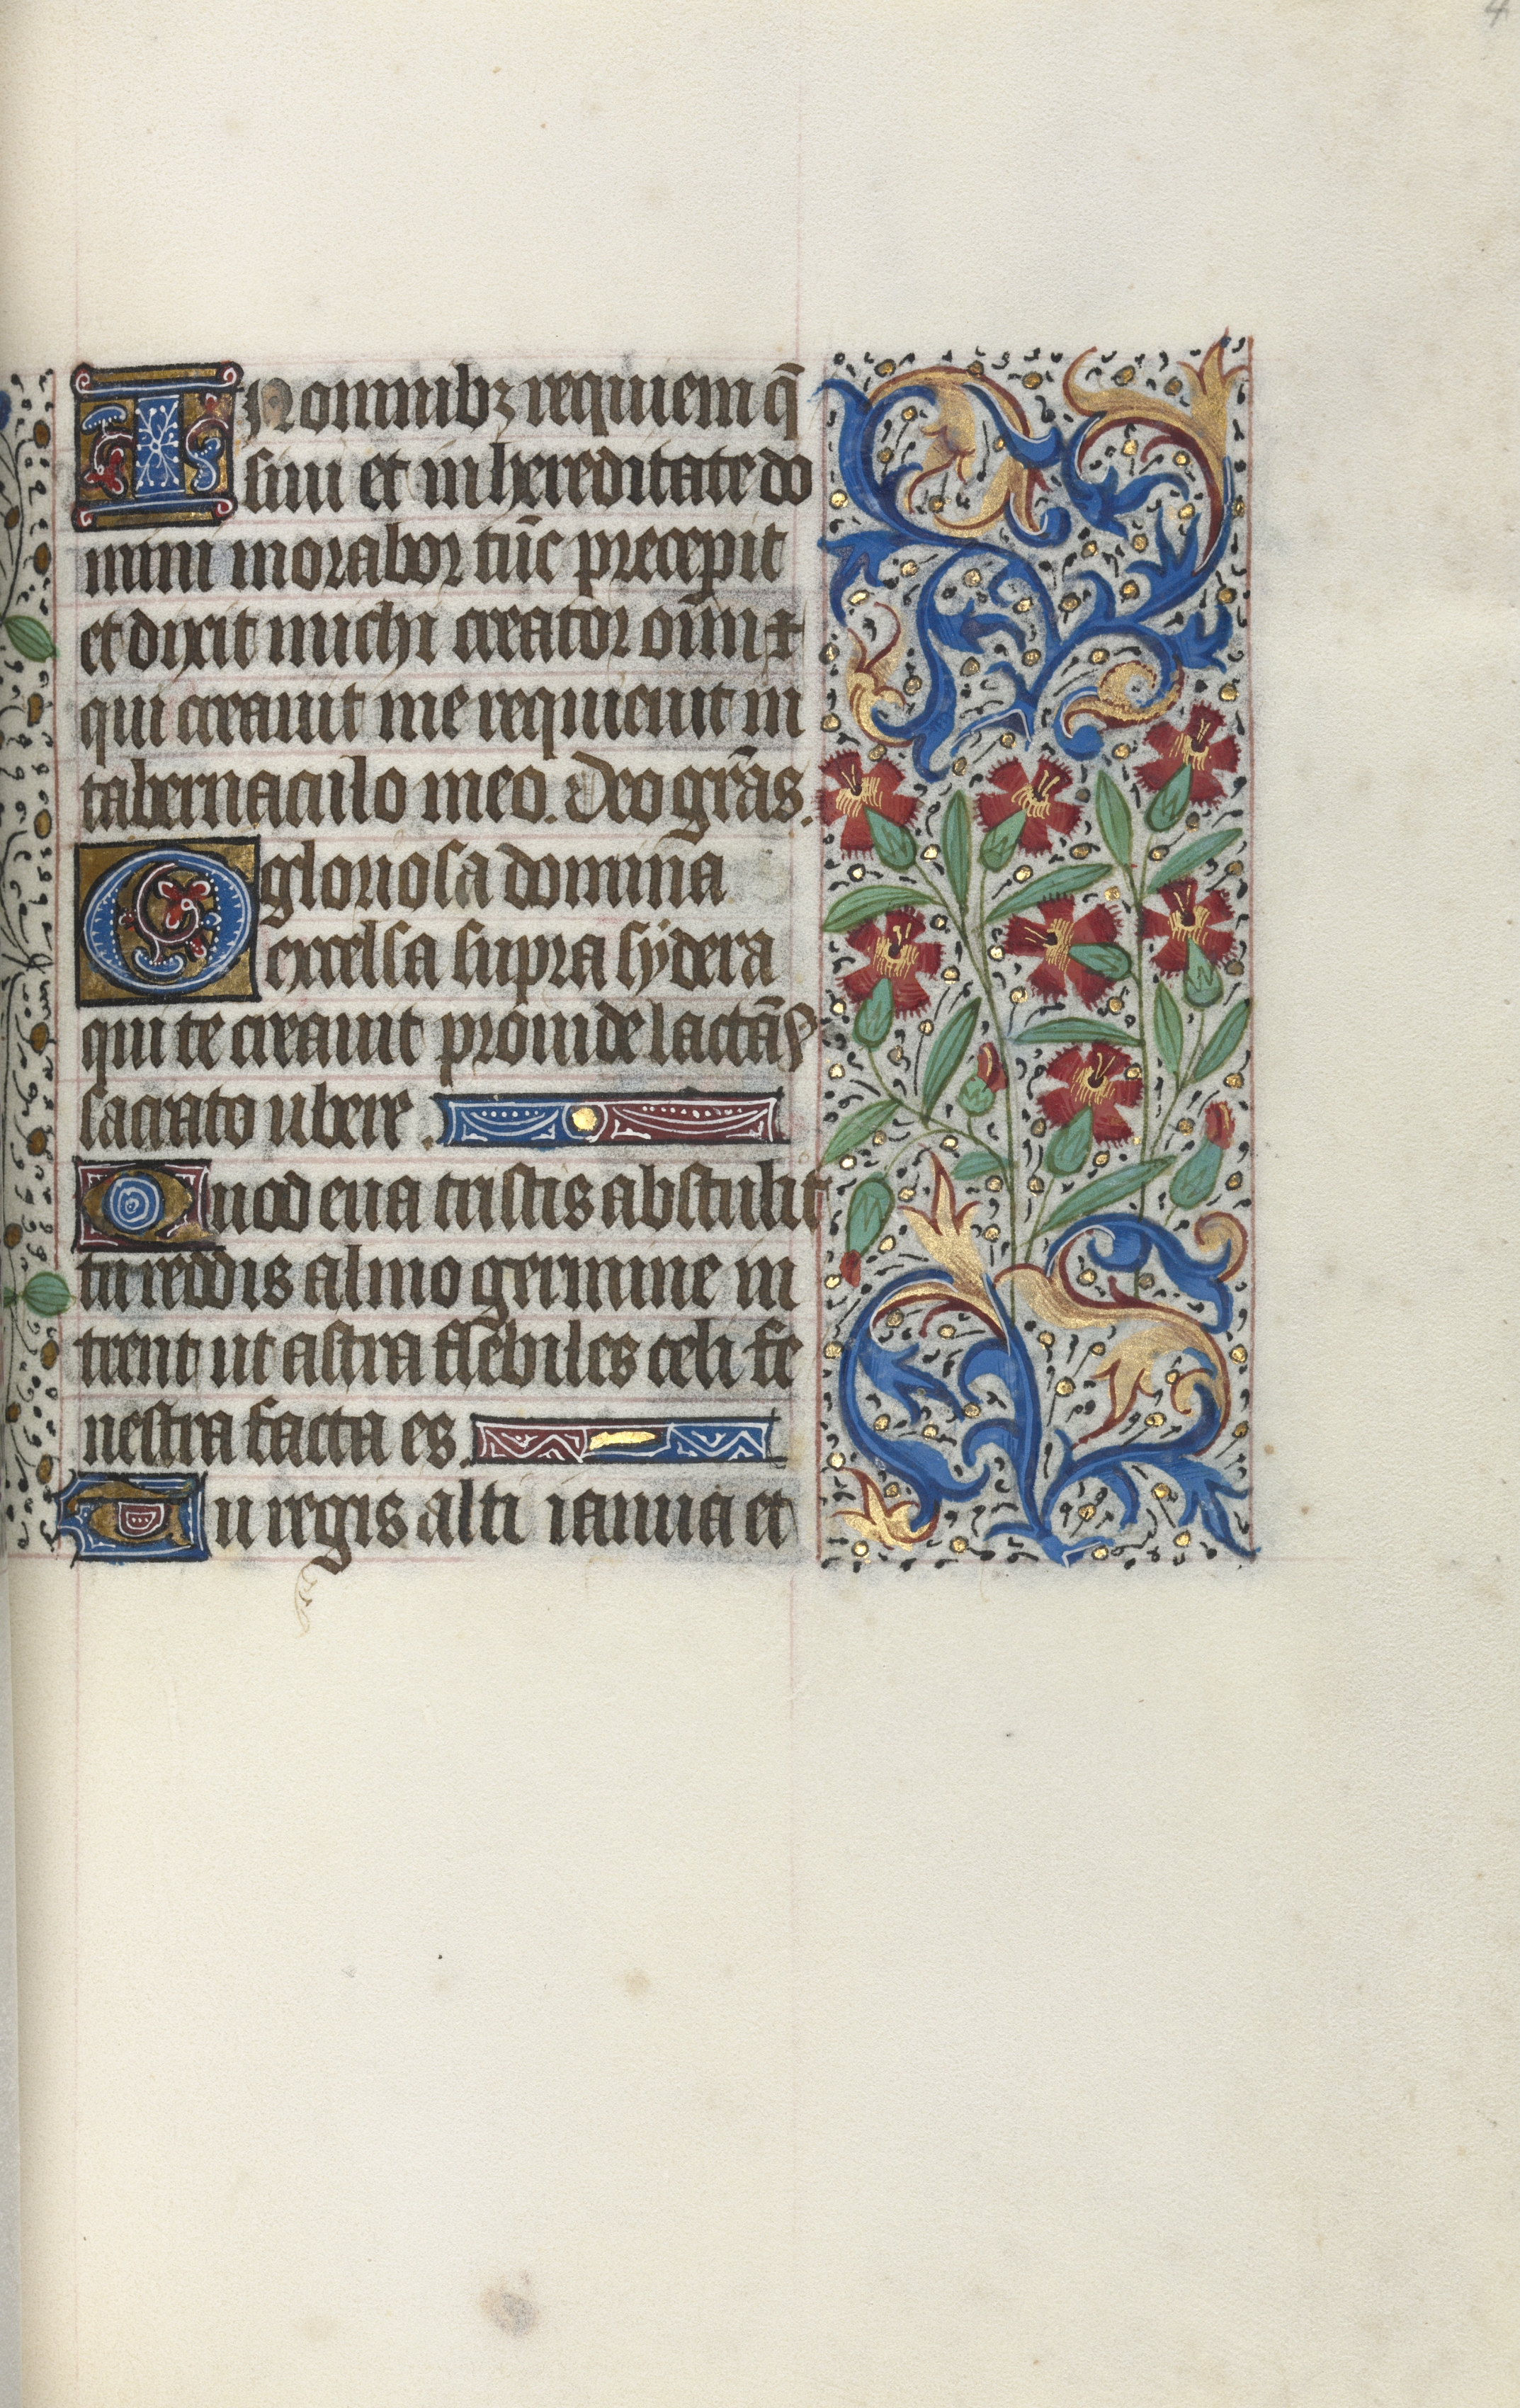 In omnibꝫ requiem q̄
siui et in hereditate do
mini morabor tūc precepit
et dixit michi creator oīm ⁊
qui creauit me requieuit in
tabernaculo meo. Deo gr̄as.
O gloriosa domina
excelsa supra sÿdera
qui te creauit prouide lactās
sacrato ubere.
Quod eua tristis abstulit
tu reddis almo germine in
trent ut astra flebiles celi fe
nestra facta es.
Tu regis alti ianua et